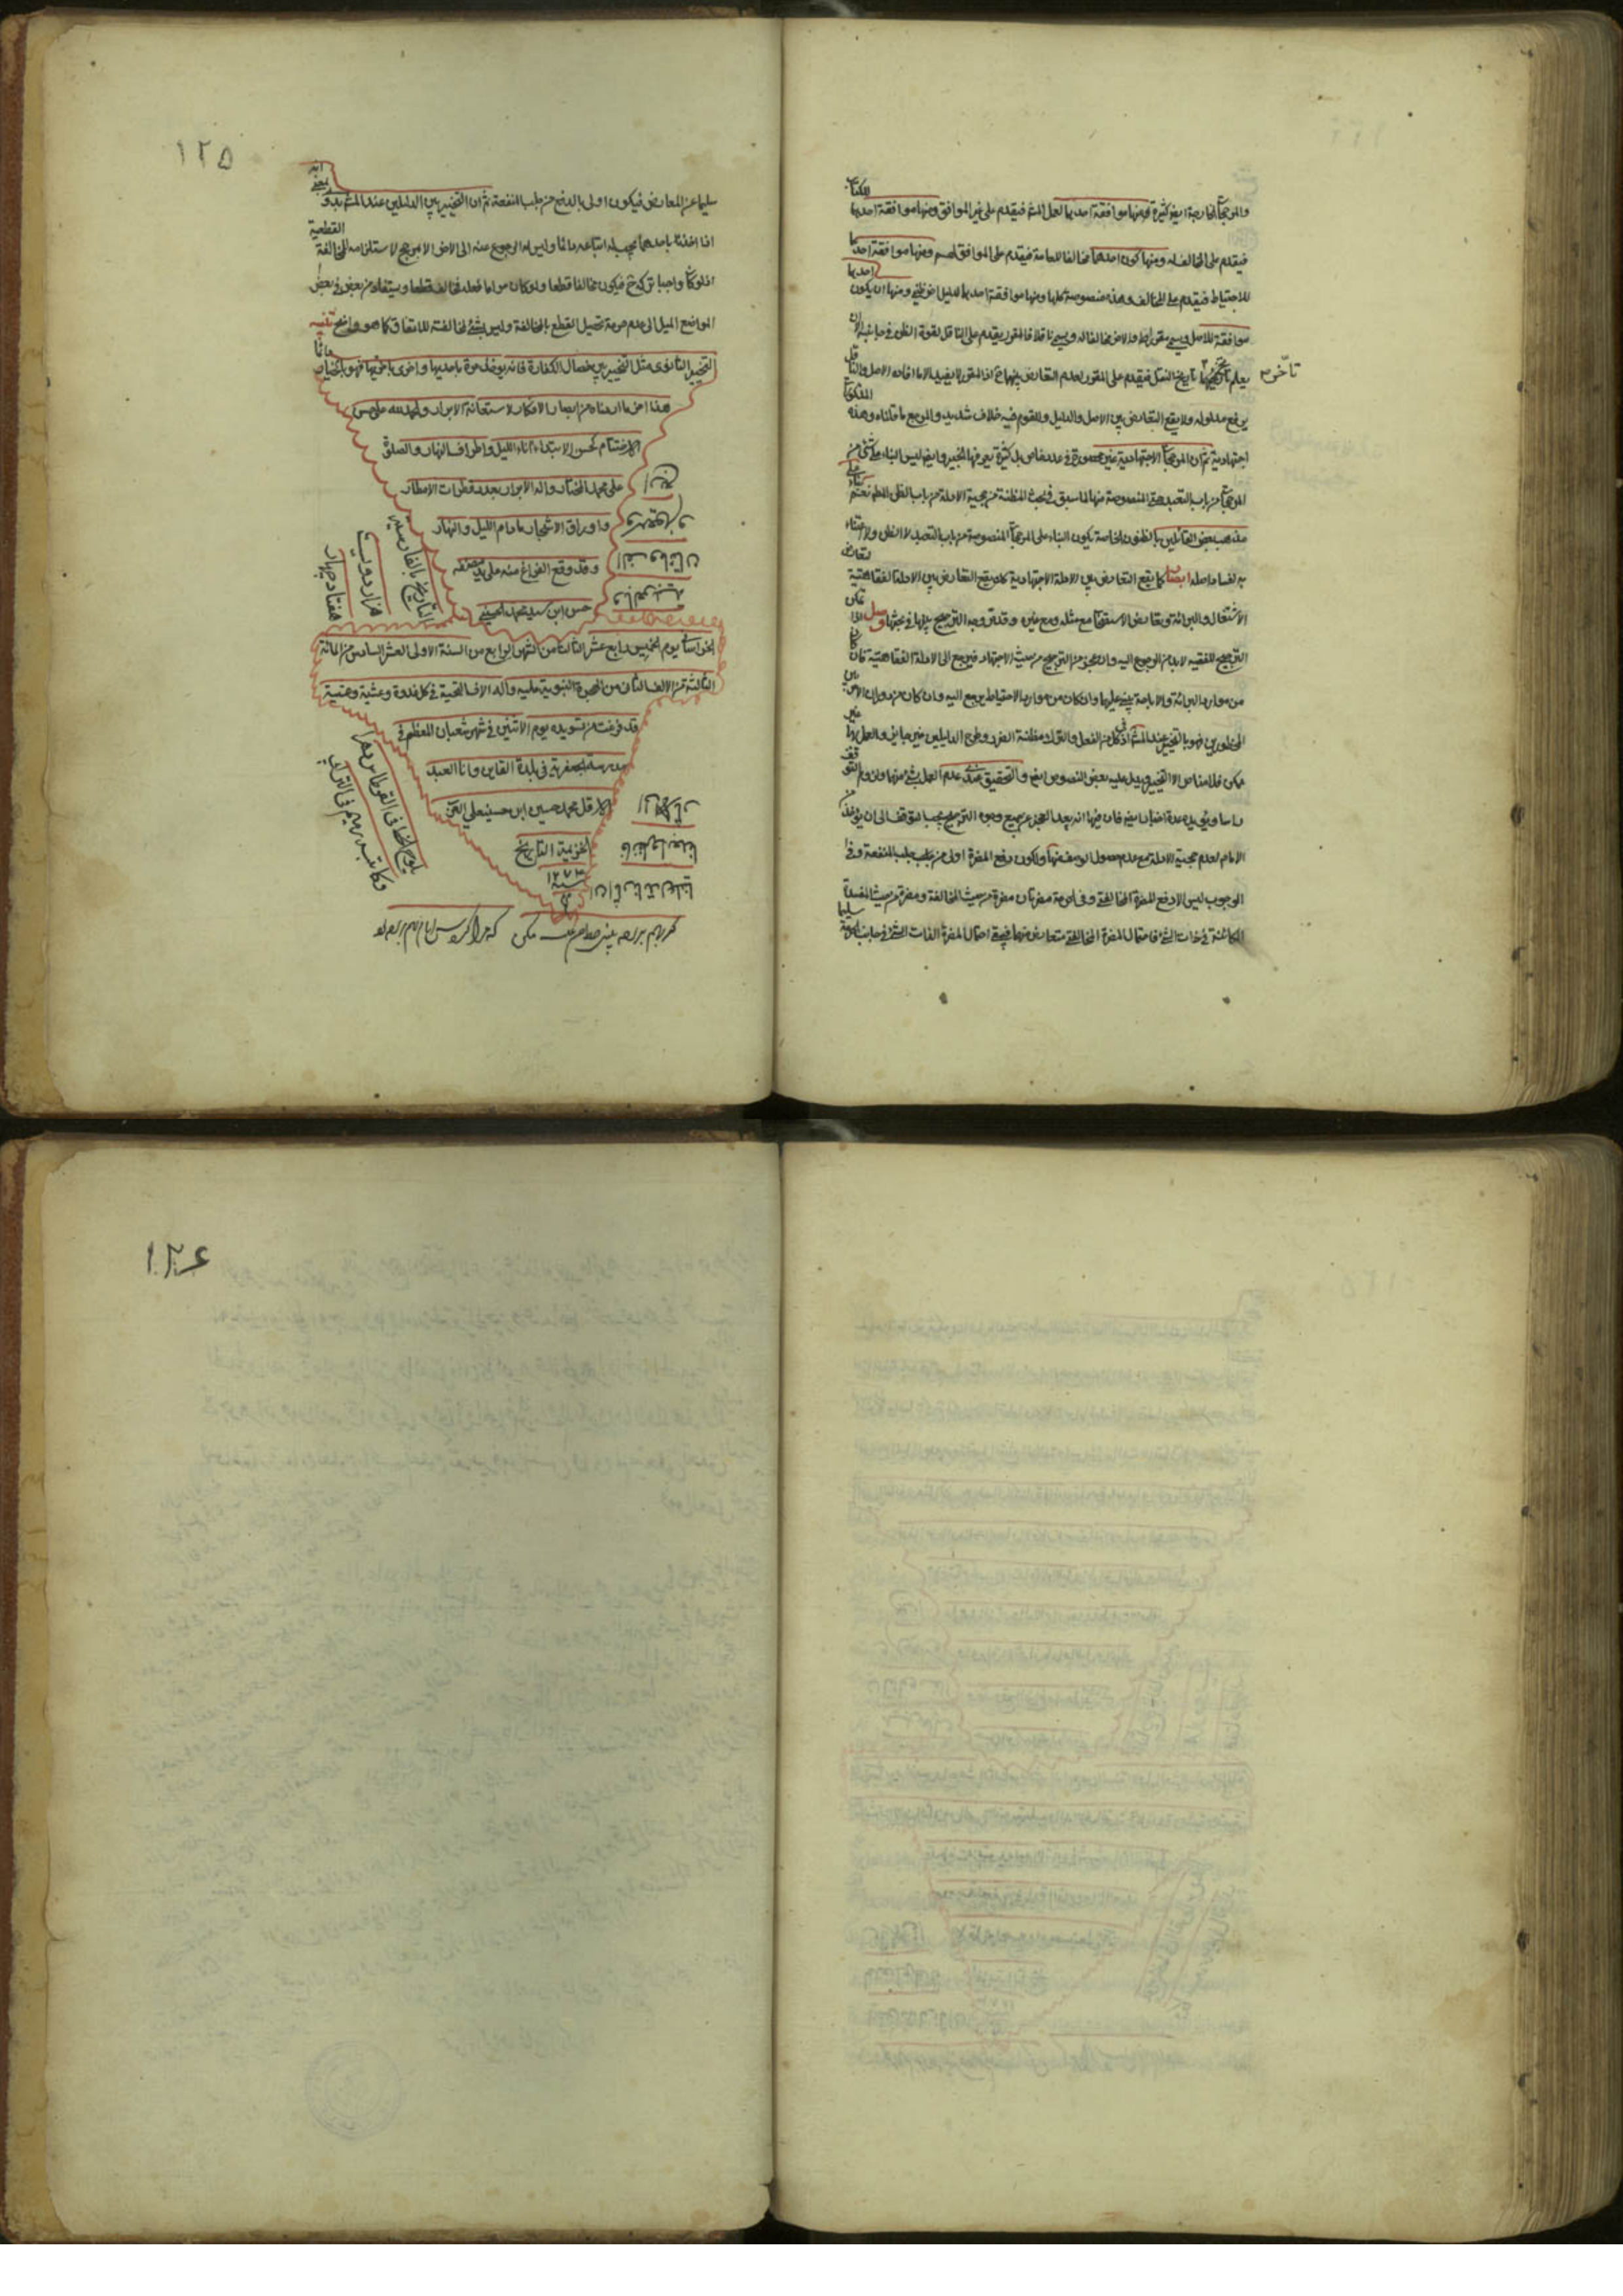 والمرجحات الخارجة ايضا كثيرة فمنها موافقة احدهما لعمل المشهور فيقدم على غير الموافق ومنها موافقة احدهما للكتاب
فيقدم على المخالف له ومنها كون احدهما مخالفا للعامة فيقدم على الموافق لهم ومنها موافقة احدهما
للاحتياط فيقدم على المخالف وهذه منصوصة كلها ومنها موافقة احدهما لدليل اخر ظني ومنها ان يكون احدهما
موافقة للاصل ويسمى مقررا والاخر مخالفا له ويسمى ناقلا فالمقرر يقدم على الناقل لقوة الظن في جانبه الا ان
يعلم تاريخ النقل فيقدم على المقرر لعدم التعارض بينهما اذ المقرر لا يفيد الا ما افاده الاصل والناقل
تأخر
يرفع مدلوله ولا يقع التعارض بين الاصل والدليل وللقوم فيه خلاف شديد والمرجع ما قلناه وهذه المذكورات
اجتهادية ثم ان المرجحات الاجتهادية غير محصورة في عدد خاص بل كثيرة يعرفها الخبير وايضا ليس البناء على شيء من
المرجحات من باب التعبد حتى المنصوصة منها لما سبق في بحث المظنة من حجية الادلة من باب الظن المطلق نعم بناء على
مذهب بعض القائلين بالظنون الخاصة يكون البناء على المرجحات المنصوصة من باب التعبد لا الظن ولا اعتناء
به لفساد اصله ايضاح كما يقع التعارض بين الادلة الاجتهادية كذا يقع التعارض بين الادلة الفقاهتية كتعارض
الاشتغال والبرائة وتعارض الاستصحاب مع مثله ومع غيره وقد مر وجه الترجيح بينها في بحثها وصل اذا كان
الترجيح للفقيه لا بد من الرجوع اليه وان عجز من الترجيح من حيث الاجتهاد فيرجع الى الادلة الفقاهتية فان كان
من موارد البرائة والاباحة يبني عليهما وان كان من موارد الاحتياط يرجع اليه وان كان من دوران الامر بين
المحظورين فهو بالتخيير عند المشهور اذ كل من الفعل والترك مظنة الضرر وطرح الدليلين غير جايز والعمل بهما غير
ممكن فلا مناص الا التخيير ويدل عليه بعض النصوص ايضا والتحقيق عندي عدم العمل بشيء منهما ولزوم التوقف
الامام لعدم حجية الادلة مع عدم حصول الوصف منها ولكون دفع المضرة اولى من جلب المنفعة وفي
الوجوب ليس الا دفع المضرة المخالفتي وفي الحرمة مضرتان مضرة من حيث المخالفة ومضرة من حيث المفسدة
الكائنة في ذات الشيء فاحتمال المضرة المخالفتي متعارض منهما فيبقى احتمال المضرة الذات الشيء في جانب الحرمة سليما
١٢٥
سليما عن المعارض فيكون اولى بالدفع من جلب المنفعة ثم ان التخيير بين الدليلين عند المشهور بدوي بمعنى انه
اذا اخذنا باحدهما يجب له اتباعه دائما وليس له الرجوع عنه الى الاخر الا لمرجح لاستلزامه المخالفة القطعية
اذ لو كان واجبا تركه ح فيكون مخالفا قطعا ولو كان حراما فعله مخالفة قطعا ويستفاد من بعض في بعض
المواضع الميل الى عدم حرمة تحصيل القطع بالمخالفة وليس بشيء لمخالفته للاتفاق كما هو واضح تنبيه
التخيير الثانوي مثل التخيير بين خصال الكفارة فانه يوخذ مرة باحديها واخرى باخريها فهو بالخيار دائما
هذا اخر ما اردناه من ايجاد الافكار لاستعانة الابرار والحمد لله على حسن
الاختتام كحسن الابتداء آناء الليل واطراف النهار والصلوة
على محمد المختار واله الابرار بعدد قطرات الامطار
واوراق الاشجار ما دام الليل والنهار
وقد وقع الفراغ منه على يد مصنفه
حسن ابن سيد محمد الحسيني
التاريخ بالفارسية
هزار دويست
هفتاد چهار
الخراساني يوم الخميس رابع عشر الثالث من الشهر الرابع من السنة الاولى العشر السادس من المائة
الثالثة من الالف الثاني من الهجرة النبوية عليه وآله الاف التحية في كل غدوة وعشية
قد فرغت من تسويده يوم الاثنين في شهر شعبان المعظم في
مدرسه جعفرية في بلدة القاين وانا العبد
الاقل محمد حسين ابن حسينعلي
الخزيمة التاريخ
سنه ١٢٧٣
يلوح الخط في القرطاس دهرا
وكاتبه رميم في التراب
١٢٦